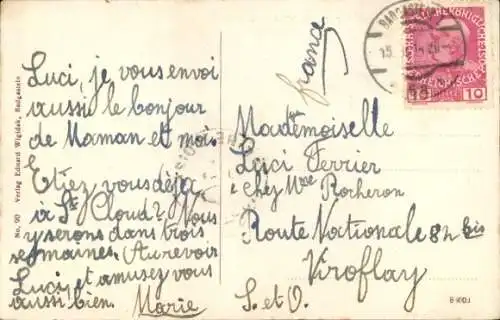 Luci, je vous envoi
aussi le bonjour
de Maman et moi.
Etiez vous déja
à St Cloud? Nous
y serons dans trois
semaines. Au revoir
Luci, et amusez vous
aussi bien. Marie
No. 90 Verlag Eduard Badgastein
france
BADGASTEIN
10
10
Mademoiselle
Luci Ferrier
chez Mme Rocheron
Route Nationale 82 bis
Viroflay
S. et O.